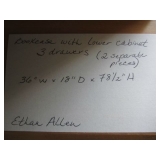 Bookcase with lower cabinet
3 drawers (2 separate
pieces)
36" W x 18" D x 78 1/2" H
Ethan Allen